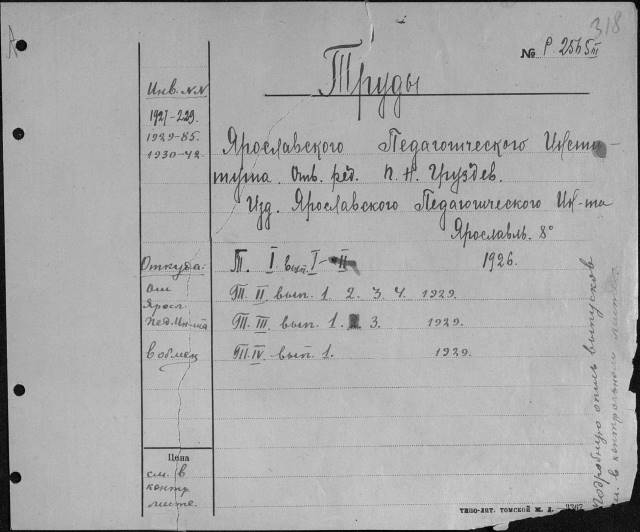 318
А
№ Р. 2565 III
Труды
Инв. NN
1927-229.
1929-85.
1930-42
Ярославского Педагогического Инсти-
тута. Отв. ред. П. Н. Груздев.
Изд. Ярославского Педагогического Ин-та
Ярославль. 8°
Откуда:
Т. I вып. I-II 1926.
От
Яросл.
Пед. Ин-та
в обмен
Т. II вып. 1. 2. 3. 4. 1929.
Т. III. вып. 1. 3. 1929.
Т. IV. вып. 1. 1929.
Цена
см. в
контр
листе.
Подробную опись выпусков
см. в контрольном листе
ТИПО-ЛИТ. ТОМСКОЙ Ж. Д.